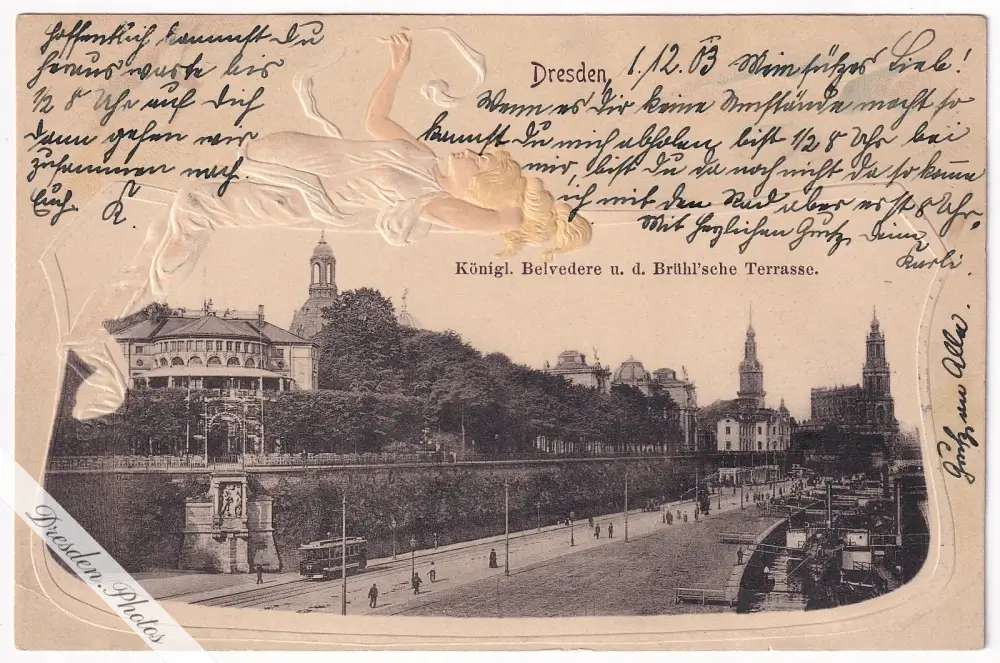 Dresden, 1./12. 03 Mein süßes Lieb!
Wenn es Dir keine Umstände macht so
kannst Du mich abholen, bist 1/2 8 Uhr bei
mir, bist Du da noch nicht da so komme
ich mit dem Rad aber erst 8 Uhr.
Mit herzlichen Gruß, Dein
Karli.
Hoffentlich kommst Du
heraus warte bis
1/2 8 Uhr auf Dich
dann gehen wir
zusammen nach
Euch. K
Gruß an Alle.
Königl. Belvedere u. d. Brühl'sche Terrasse.
Dresden.Photos